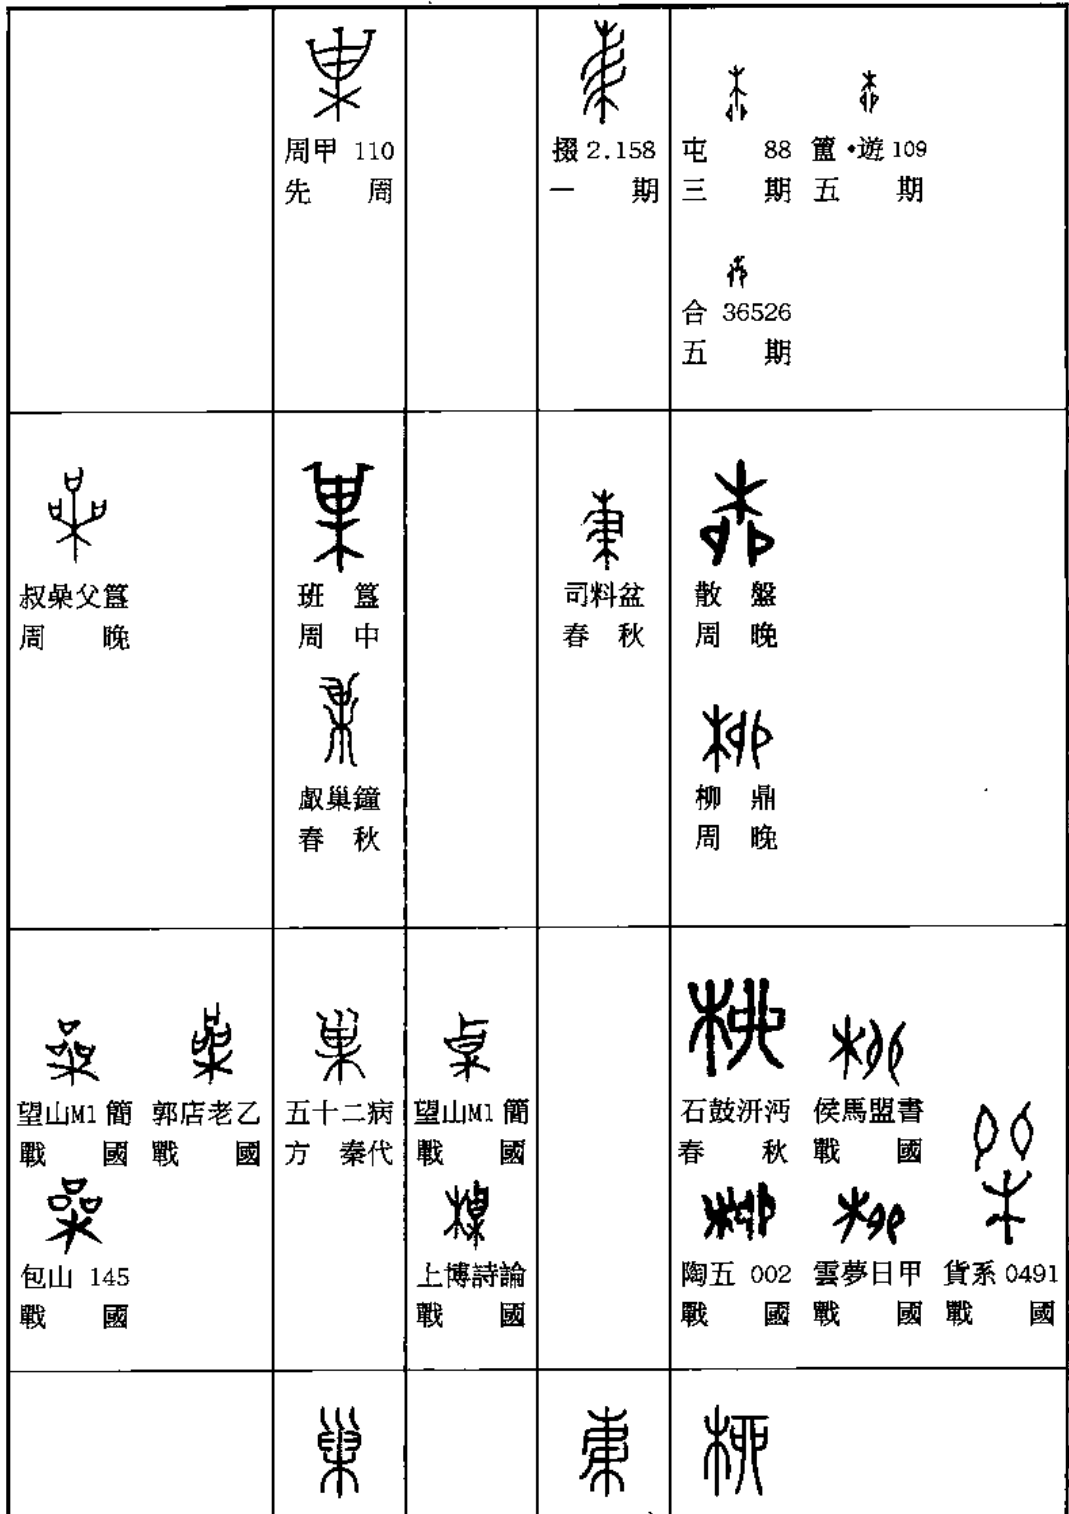 周甲 110
先 周
掇 2.158
一 期
屯 88
三 期
簠·遊 109
五 期
合 36526
五 期
叔喿父簋
周 晚
班 簋
周 中
𠭯巢鐘
春 秋
司料盆
春 秋
散 盤
周 晚
柳 鼎
周 晚
望山M1 簡
戰 國
郭店老乙
戰 國
包山 145
戰 國
五十二病
方 秦代
望山M1 簡
戰 國
上博詩論
戰 國
石鼓汧沔
春 秋
侯馬盟書
戰 國
陶五 002
戰 國
雲夢日甲
戰 國
貨系 0491
戰 國